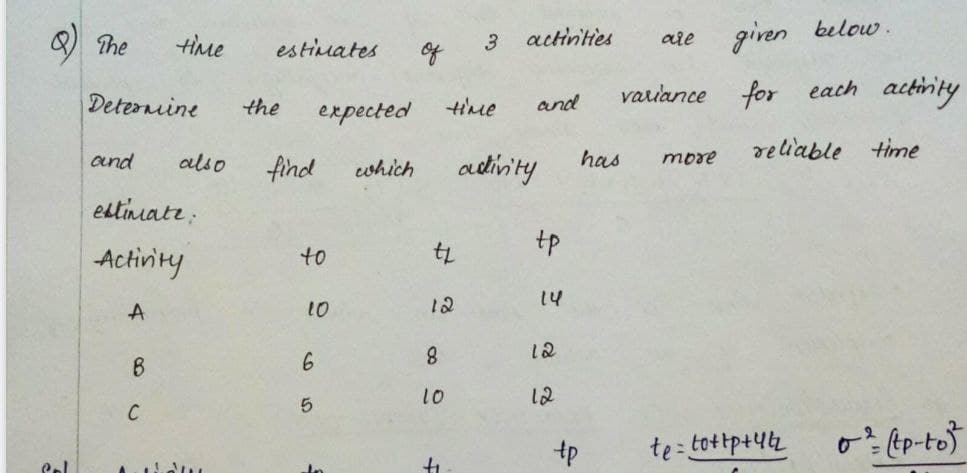 Q) The time estimates of 3 activities are given below.
Determine the expected time and variance for each activity
and also find which activity has more reliable time
estimate:
Activity to tL tp
A 10 12 14
B 6 8 12
C 5 10 12
tp te = to+tp+4tL σ² = (tp-to)²